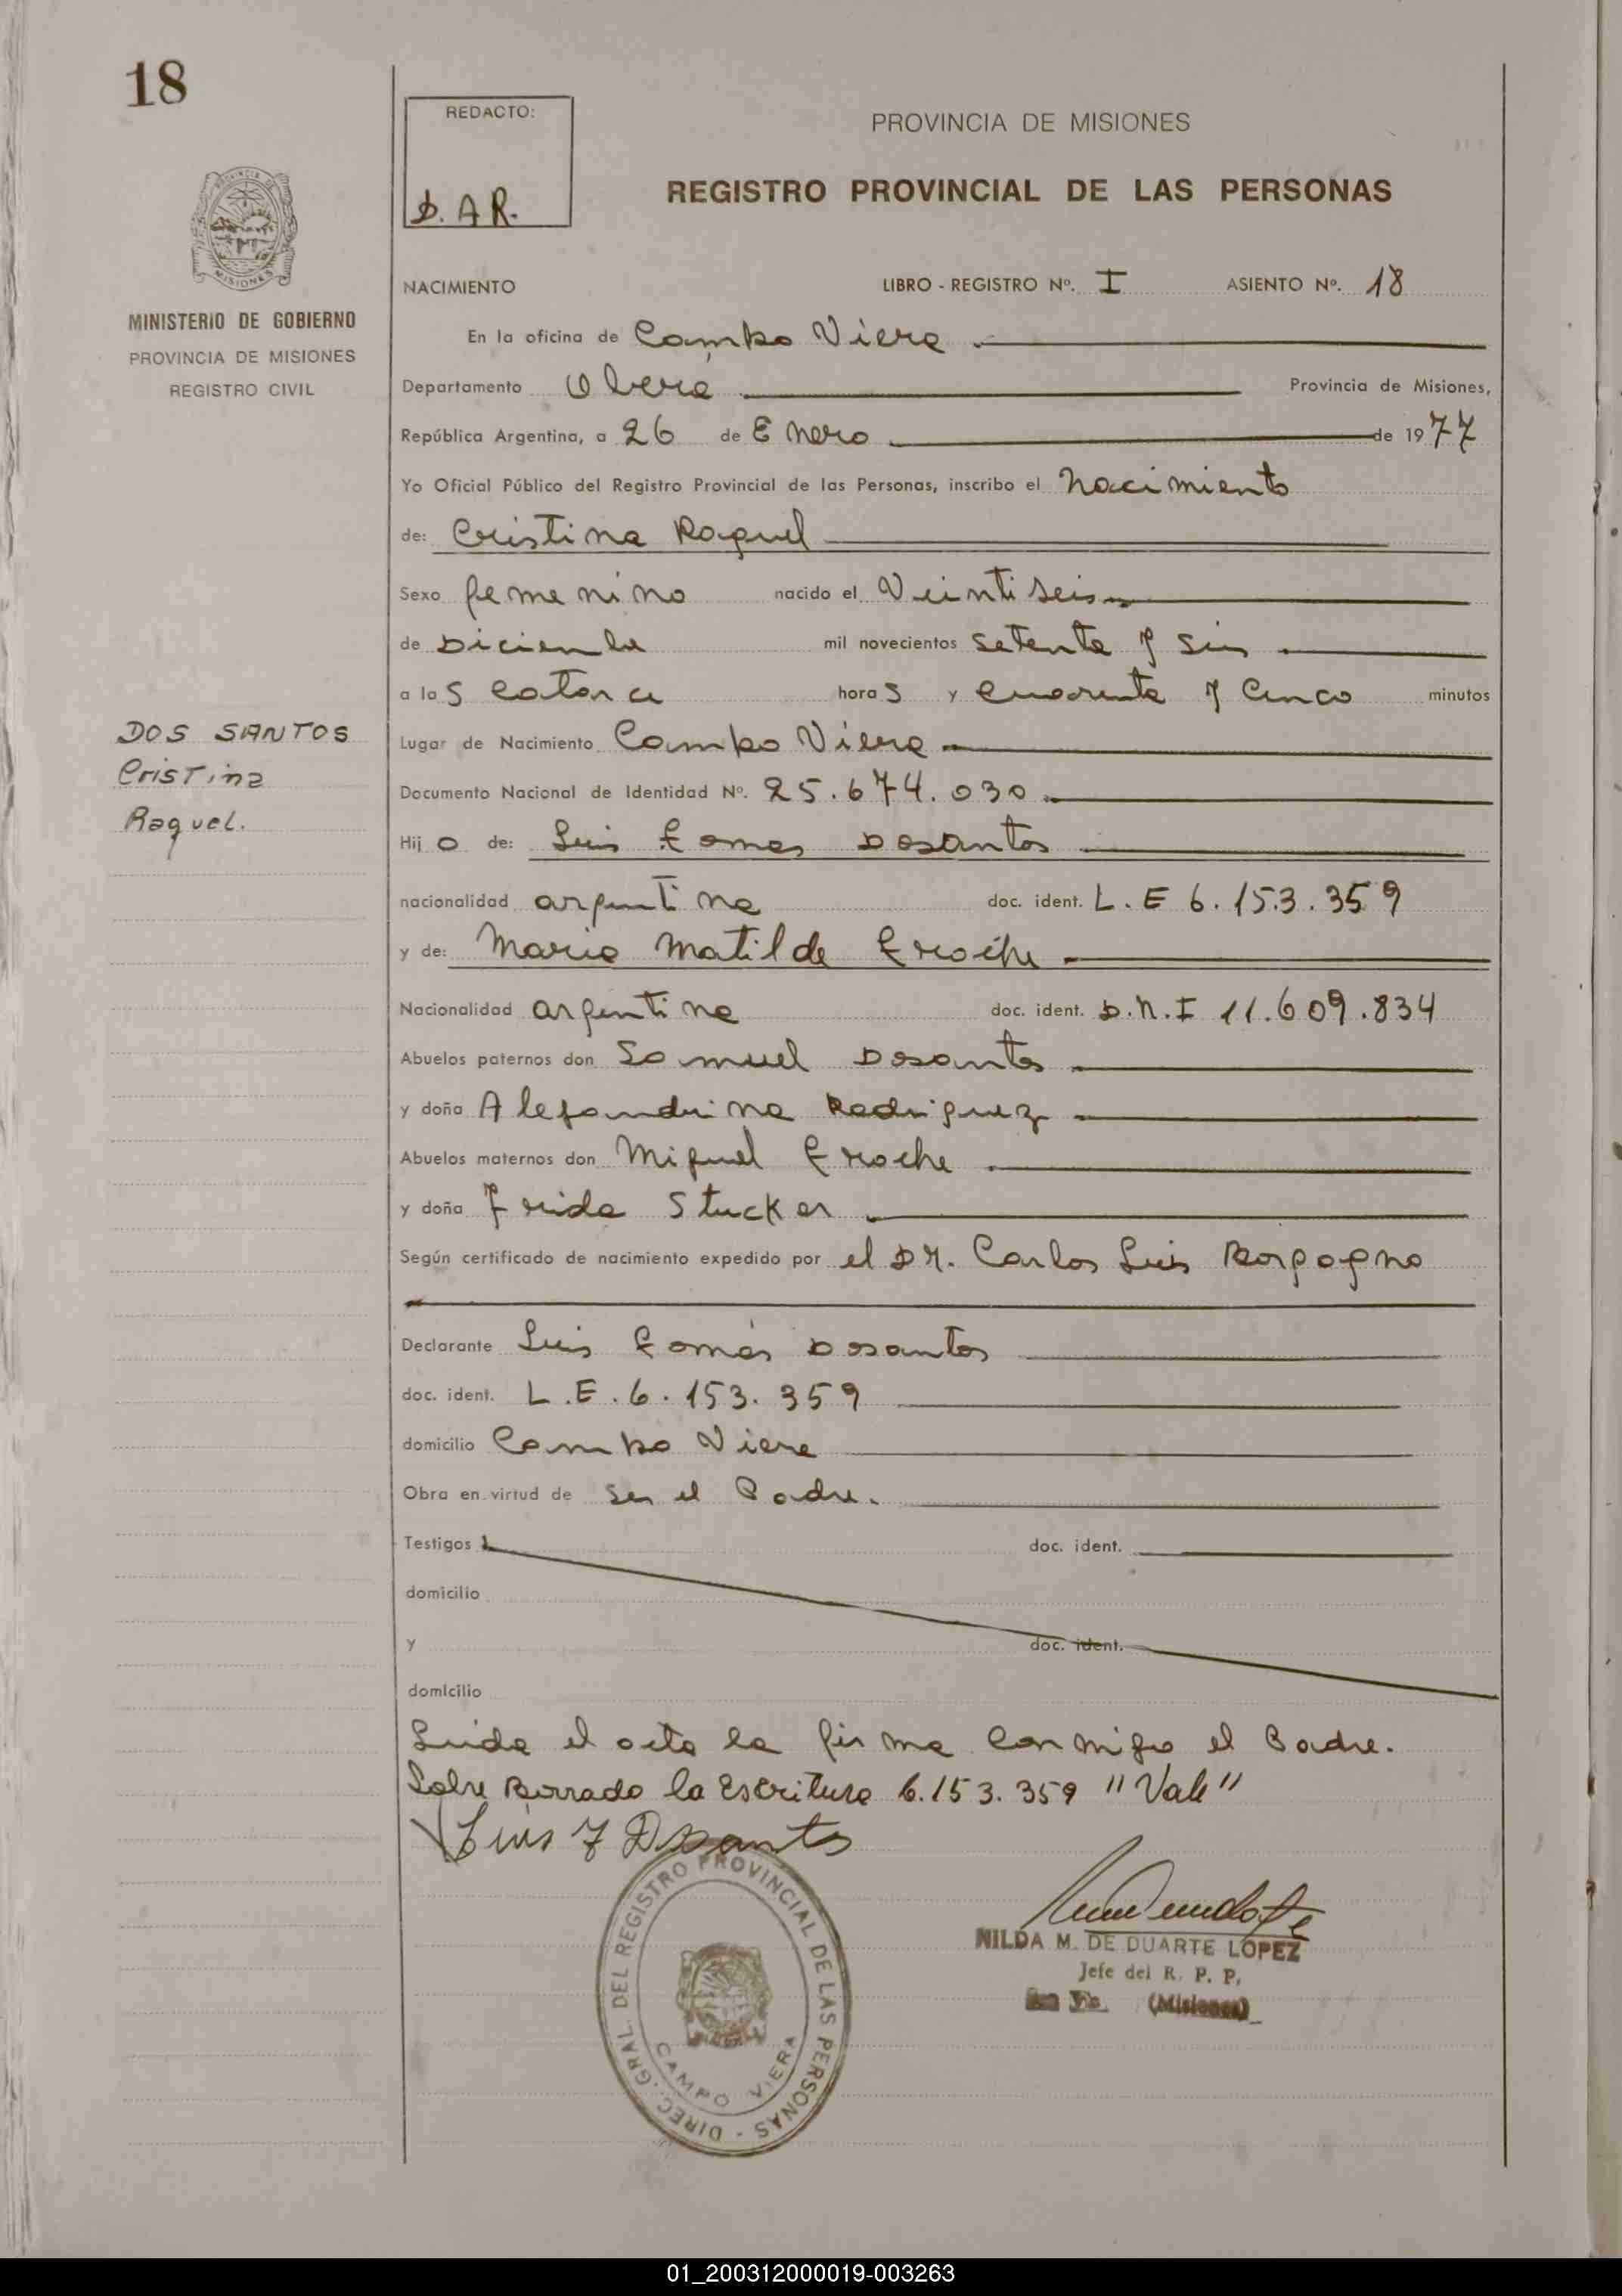 18
REDACTO:
D. A R.
PROVINCIA DE MISIONES
REGISTRO PROVINCIAL DE LAS PERSONAS
MISIONES
MINISTERIO DE GOBIERNO
PROVINCIA DE MISIONES
REGISTRO CIVIL
NACIMIENTO LIBRO - REGISTRO Nº. I ASIENTO Nº. 18
En la oficina de Campo Viera
Departamento Oberá Provincia de Misiones,
República Argentina, a 26 de Enero de 1977
Yo Oficial Público del Registro Provincial de las Personas, inscribo el nacimiento
de: Cristina Raquel
Sexo femenino nacido el Veintiseis
de Diciembre mil novecientos setenta y seis
a las catorce horas y cuarenta y cinco minutos
DOS SANTOS
Cristina
Raquel.
Lugar de Nacimiento Campo Viera
Documento Nacional de Identidad Nº. 25.674.030
Hijo de: Luis Tomas Dosantos
nacionalidad argentina doc. ident. L. E 6.153.359
y de: Maria Matilde Eroche
Nacionalidad argentina doc. ident. D.N.I 11.609.834
Abuelos paternos don Samuel Dosantos
y doña Alejandrina Rodriguez
Abuelos maternos don Miguel Eroche
y doña Frida Stucker
Según certificado de nacimiento expedido por el DR. Carlos Luis Borgogno
Declarante Luis Tomás Dosantos
doc. ident. L.E. 6.153.359
domicilio Campo Viera
Obra en virtud de ser el Padre.
Testigos doc. ident.
domicilio
y doc. ident.
domicilio
Leida el acta la firma conmigo el Padre.
Sobre Borrado la Escritura 6.153.359 "Vale"
Luis T Dsantos
DIREC. GRAL. DEL REGISTRO PROVINCIAL DE LAS PERSONAS -
CAMPO VIERA
NILDA M. DE DUARTE LOPEZ
Jefe del R. P. P.
(Misiones)
01_200312000019-003263